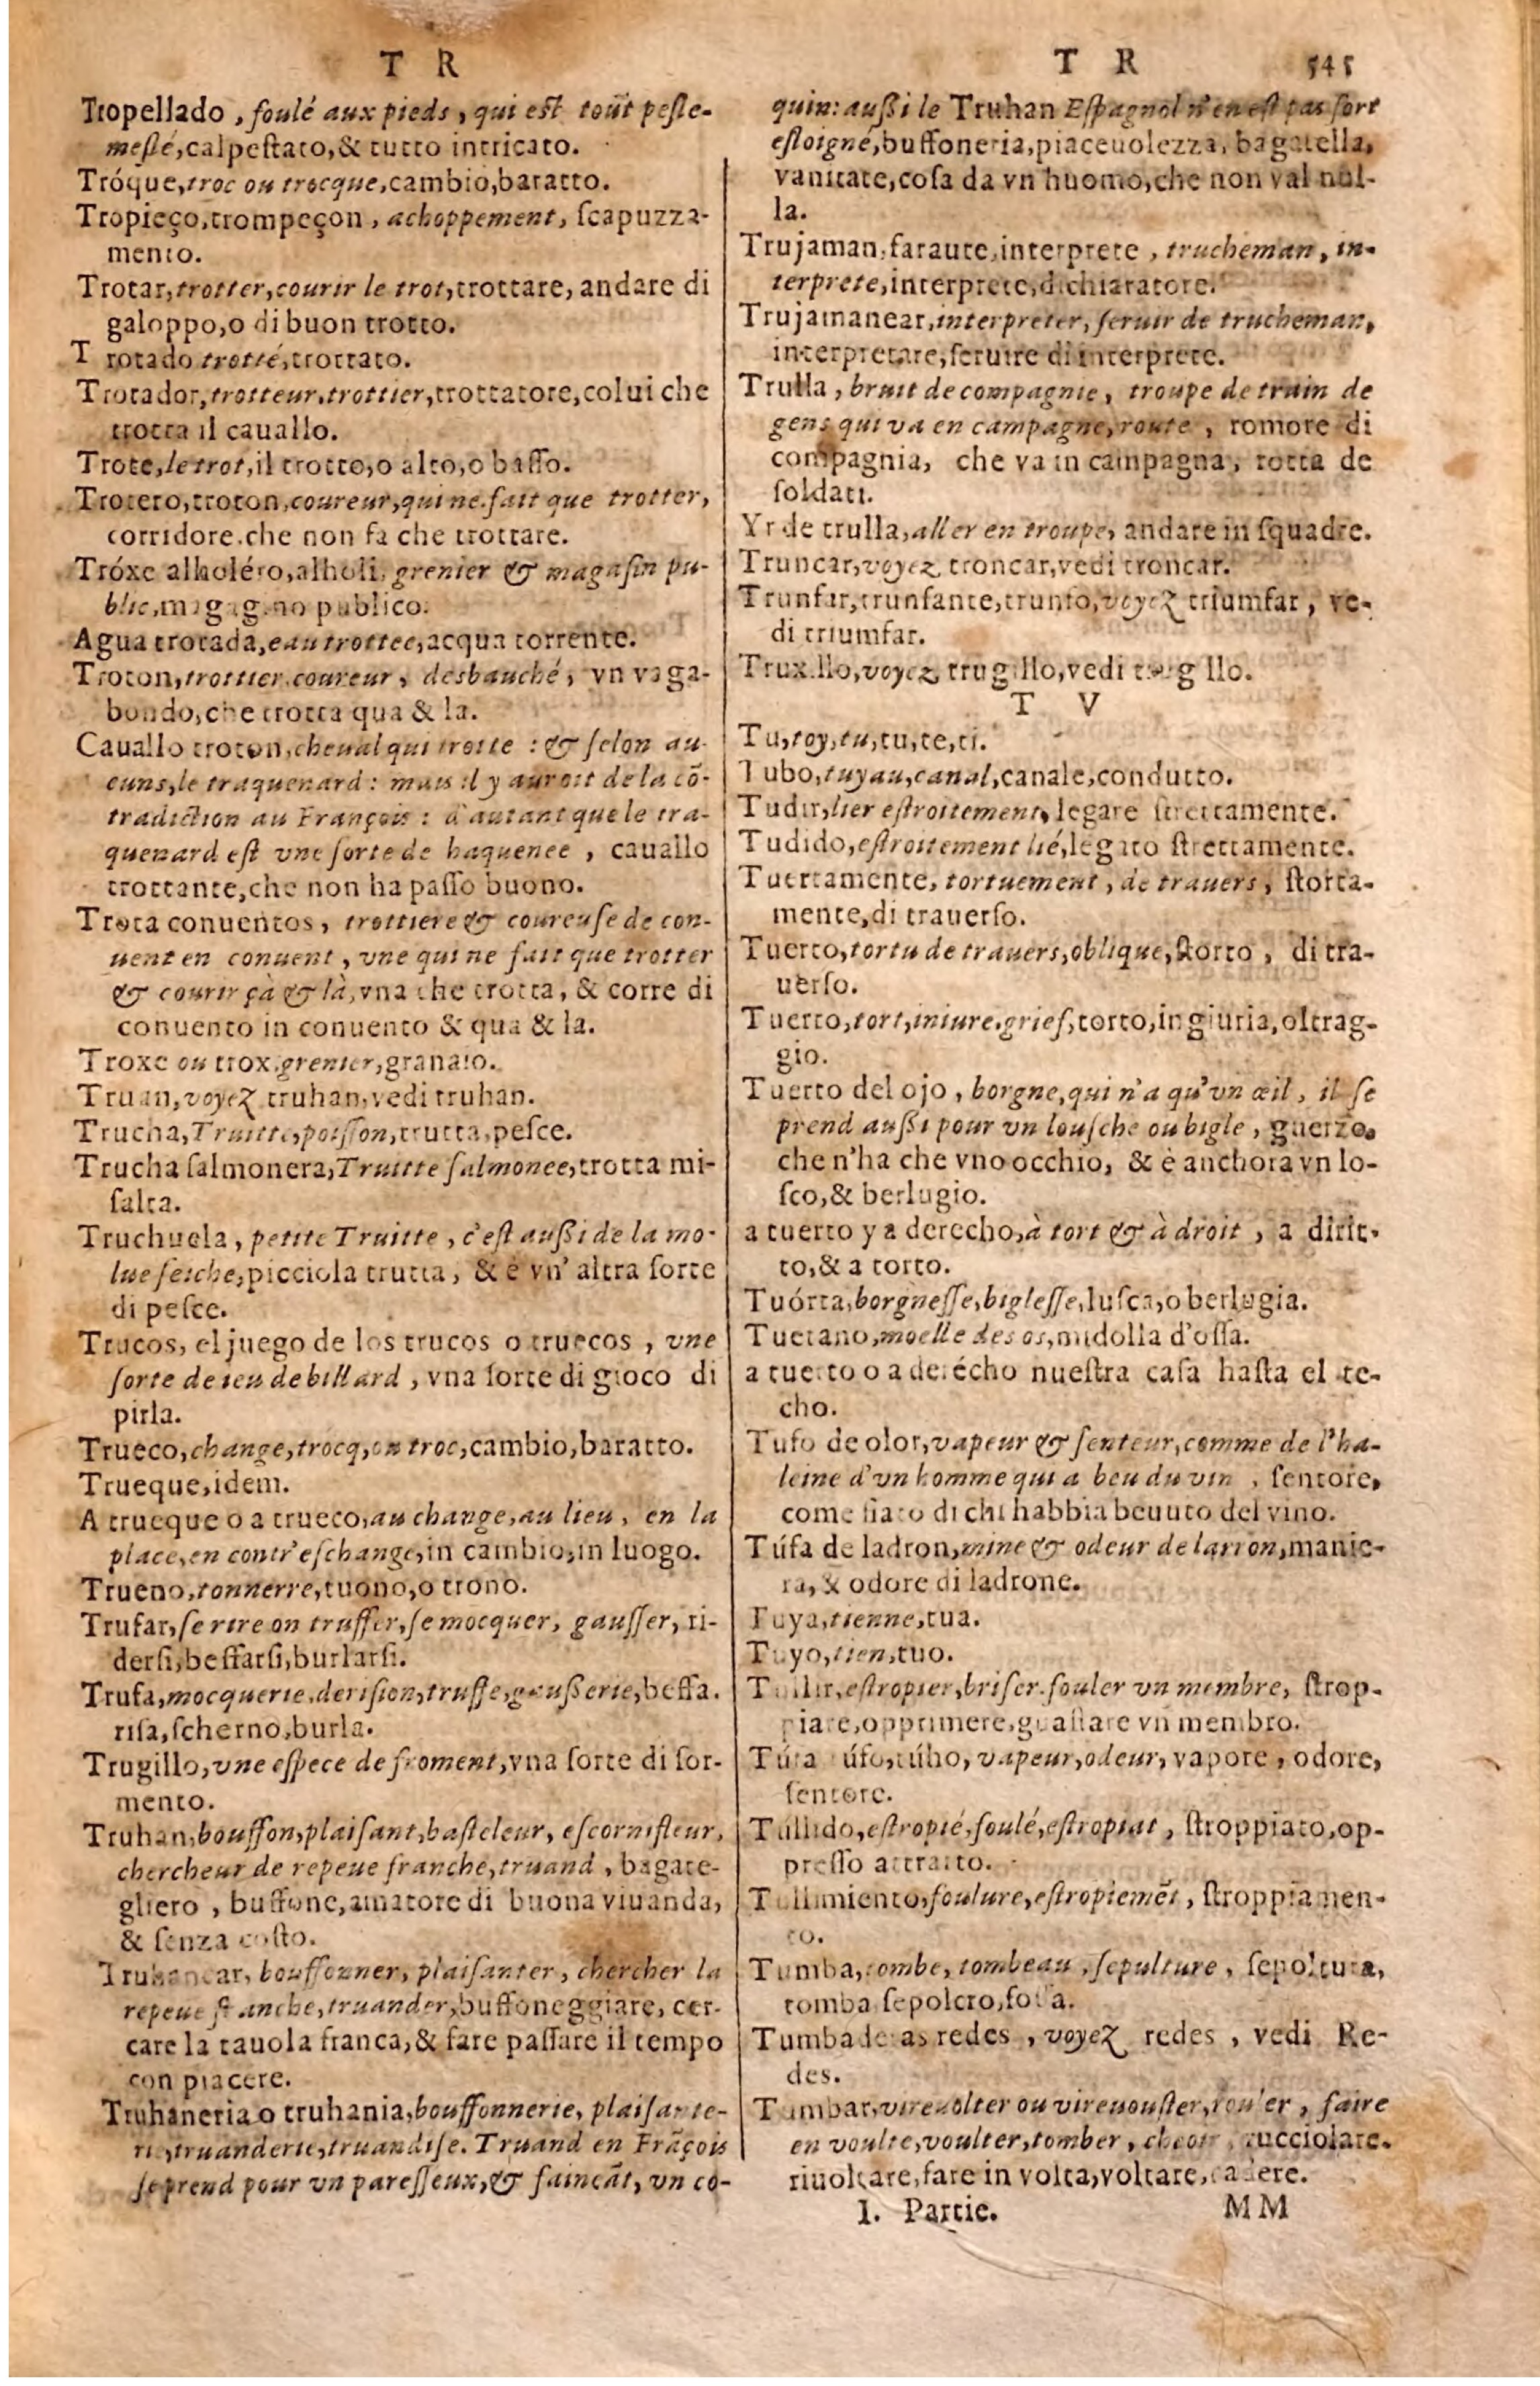 T R
Tropellado, foulé aux pieds, qui est tout pesle-
meslé,calpestato,& tutto intricato.
Tróque,troc ou trocque,cambio,baratto.
Tropieço,trompeçon, achoppement, scapuzza-
mento.
Trotar,trotter,courir le trot,trottare, andare di
galoppo,o di buon trotto.
T rotado trotté,trottato.
Trotador,trotteur,trottier,trottatore,colui che
trotta il cauallo.
Trote,le trot,il trotto,o alto,o basso.
Trotero,troton,coureur,qui ne fait que trotter,
corridore.che non fa che trottare.
Tróxe alholéro,alholi, grenier & magasin pu-
blic,magagino publico.
Agua trotada,eau trottee,acqua torrente.
Troton,trottier.coureur, desbauché, vn vaga-
bondo,che trotta qua & la.
Cauallo troton,cheual qui trotte : & selon au-
cuns,le traquenard : mais il y auroit de la cõ-
tradiction au François : d'autant que le tra-
quenard est vne sorte de haquenee, cauallo
trottante,che non ha passo buono.
Trota conuentos, trottiere & coureuse de con-
uent en conuent, vne qui ne fait que trotter
& courir çà & là,vna che trotta, & corre di
conuento in conuento & qua & la.
Troxe ou trox.grenier,granaio.
Truan,voyez truhan,vedi truhan.
Trucha,Truitte,poisson,trutta,pesce.
Trucha salmonera,Truitte salmonee,trotta mi-
salta.
Truchuela, petite Truitte, c'est aussi de la mo-
lue seiche,picciola trutta, & è vn' altra sorte
di pesce.
Trucos, el juego de los trucos o truecos, vne
sorte de ieu de billard, vna sorte di gioco di
pirla.
Trueco,change,trocq,ou troc,cambio,baratto.
Trueque,idem.
A trueque o a trueco,au change,au lieu, en la
place,en contr'eschange,in cambio,in luogo.
Trueno,tonnerre,tuono,o trono.
Trufar,se rire on truffer,se mocquer, gausser, ri-
dersi,beffarsi,burlarsi.
Trufa,mocquerie,derision,truffe,gausserie,beffa.
risa,scherno,burla.
Trugillo,vne espece de froment,vna sorte di for-
mento.
Truhan,bouffon,plaisant,basteleur, escornifleur,
chercheur de repeue franche,truand, bagate-
gliero, buffone,amatore di buona viuanda,
& senza costo.
Truhanear, bouffonner, plaisanter, chercher la
repeue franche,truander,buffoneggiare, cer-
care la tauola franca,& fare passare il tempo
con piacere.
Truhaneria o truhania,bouffonnerie, plaisante-
rie,truanderie,truandise. Truand en Frãçois
se prend pour vn paresseux,& faineãt, vn co-
T R 545
quin: aussi le Truhan Espagnol n'en est pas fort
esloigné,buffoneria,piaceuolezza, bagatella,
vanitate,cosa da vn huomo,che non val nul-
la.
Trujaman,faraute,interprete, trucheman, in-
terprete,interprete,dichiaratore.
Trujamanear,interpreter, seruir de trucheman,
interpretare,seruire di interprete.
Trulla, bruit de compagnie, troupe de train de
gens qui va en campagne,route, romore di
compagnia, che va in campagna, rotta de
soldati.
Yr de trulla,aller en troupe, andare in squadre.
Truncar,voyez troncar,vedi troncar.
Trunfar,trunfante,trunfo,voyez triumfar, ve-
di triumfar.
Truxillo,voyez trugillo,vedi trugillo.
T V
Tu,toy,tu,tu,te,ti.
Tubo,tuyau,canal,canale,condutto.
Tudir,lier estroitement,legare strettamente.
Tudido,estroitement lié,legato strettamente.
Tuertamente, tortuement, de trauers, storta-
mente,di trauerso.
Tuerto,tortu de trauers,oblique,storto, di tra-
uerso.
Tuerto,tort,iniure.grief,torto,ingiuria,oltrag-
gio.
Tuerto del ojo, borgne,qui n'a qu'vn œil, il se
prend aussi pour vn lousche ou bigle, guerzo.
che n'ha che vno occhio, & è anchora vn lo-
sco,& berlugio.
a tuerto y a derecho,à tort & à droit, a dirit-
to,& a torto.
Tuórta,borgnesse,biglesse,lusca,o berlugia.
Tuetano,moelle des os,midolla d'ossa.
a tuerto o a derécho nuestra casa hasta el te-
cho.
Tufo de olor,vapeur & senteur,comme de l'ha-
leine d'vn homme qui a beu du vin, sentore,
come fiato di chi habbia beuuto del vino.
Túfa de ladron,mine & odeur de larron,manie-
ra, & odore di ladrone.
Tuya,tienne,tua.
Tuyo,tien,tuo.
Tullir,estropier,briser.fouler vn membre, strop-
piare,opprimere,guastare vn membro.
Túfa úfo,túho, vapeur,odeur, vapore, odore,
sentore.
Tullido,estropié,foulé,estropiat, stroppiato,op-
presso attratto.
Tullimiento,foulure,estropiemẽt, stroppiamen-
to.
Tumba,tombe, tombeau, sepulture, sepoltura,
tomba sepolcro,fossa.
Tumba de las redes, voyez redes, vedi Re-
des.
Tumbar,vireuolter ou vireuouster,rouler, faire
en voulte,voulter,tomber, cheoir, rucciolare.
riuoltare,fare in volta,voltare,cadere.
I. Partie. MM